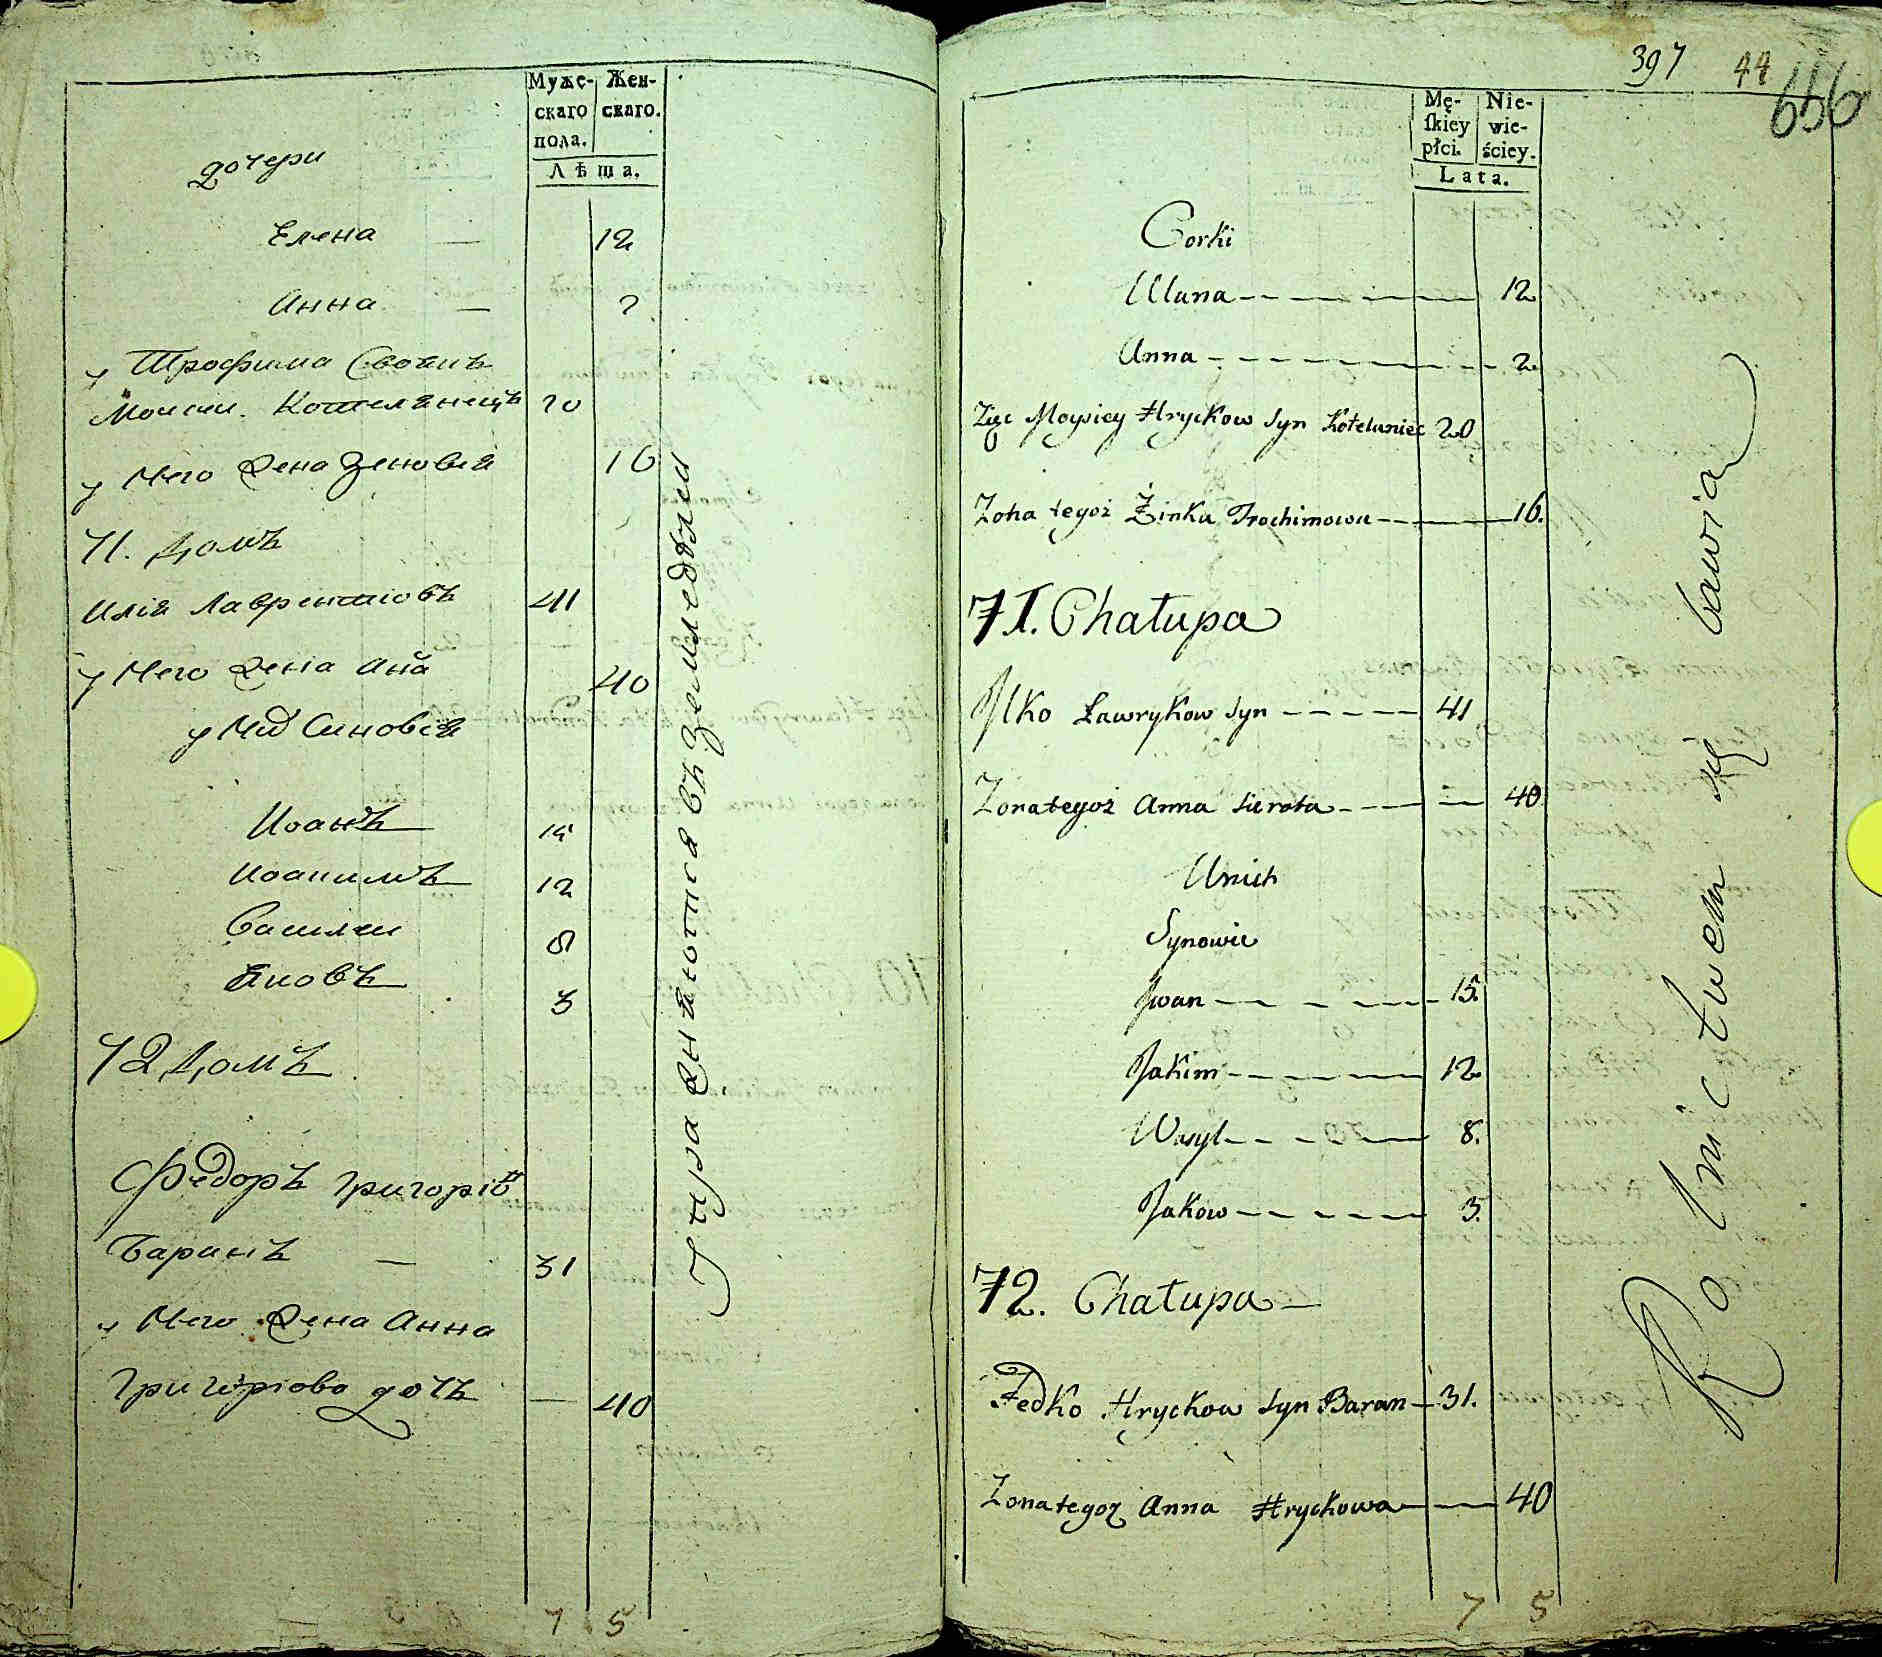 Муже-
скаго
пола.
Жен-
скаго.
Лѣта.
дочери
Елена — 12
Анна — 2
у Трофима Своякъ
Моисей Котелянецъ 20
у Него Жена Зеновія 16
71. Домъ
Илія Лаврентіовъ 41
у Него Жена Анна 40
у Них Синовія
Иоанъ 15
Иоакимъ 12
Василий 8
Яковъ 3
72 Домъ
Федоръ Григоріев
Баранъ — 31
у Него Жена Анна
Григоріова дочь — 40
7 5
упражняются въ земледѣліи
397 44
656
Mę-
skiey
płci.
Nie-
wie-
ściey.
Lata.
Corki
Ulana 12
Anna 2
Zięc Moysiey Hryckow syn Kotelaniec 20
Zona tegoż Zinka Trochimowa 16.
71. Chałupa
Ilko Ławrykow syn 41
Zona tegoż Anna sierota 40
U nich
Synowie
Iwan 15.
Jakim 12
Wasyl 8.
Jakow 3.
72. Chałupa
Fedko Hryckow syn Baran 31.
Zona tegoż Anna Hryckowa 40
7 5
Rolnictwem się bawią